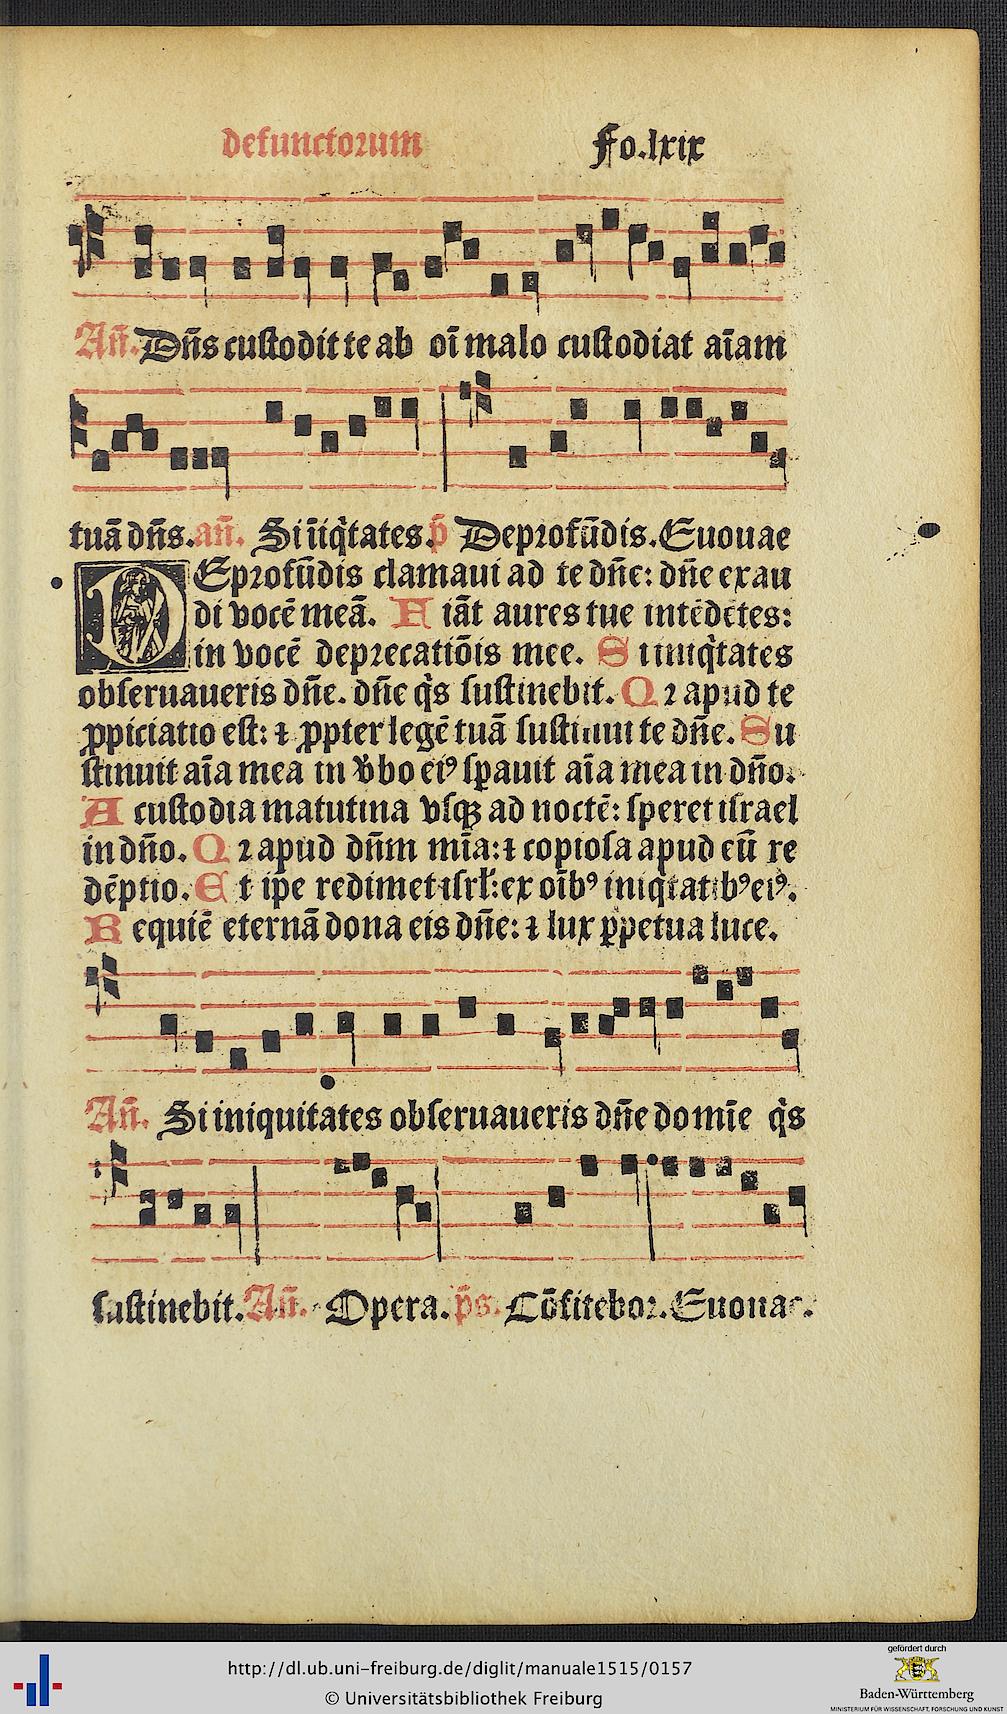 defunctorum Fo.lxix
Añ. Dñs custodit te ab oī malo custodiat aīam
tuā dñs. añ. Si iniq̇tates. p̄ De profūdis. Euouae
DEprofūdis clamaui ad te dñe: dñe exau
di vocē meā. Fiāt aures tue intēdētes:
in vocē deprecatiōis mee. Si iniq̇tates
obseruaueris dñe. dñe q̇s sustinebit. Qꝛ apud te
ꝓpiciatio est: ⁊ ꝓpter legē tuā sustinui te dñe. Su
stinuit aīa mea in v̆bo eiꝰ sꝑauit aīa mea in dño.
A custodia matutina vsqꝫ ad noctē: speret israel
in dño. Qꝛ apud dñm mīa: ⁊ copiosa apud eū re
dēptio. Et ipe redimet isrł: ex oībꝰ iniq̇tatibꝰ eiꝰ.
Requiē eternā dona eis dñe: ⁊ lux ꝑpetua luce.
Añ. Si iniquitates obseruaueris dñe domīe q̇s
sustinebit. Añ. Opera. p̄s. Cōfitebor. Euouae.
http://dl.ub.uni-freiburg.de/diglit/manuale1515/0157
© Universitätsbibliothek Freiburg
gefördert durch
Baden-Württemberg
MINISTERIUM FÜR WISSENSCHAFT, FORSCHUNG UND KUNST